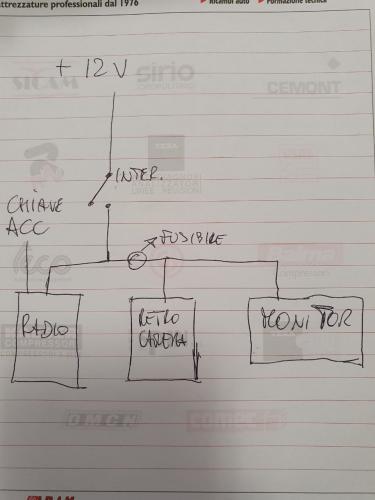 attrezzature professionali dal 1976
Ricambi auto
Formazione tecnica
+ 12 V
SICAM
sirio
CEMONT
INTER.
CHIAVE
ACC
FUSIBILE
RADIO
RETRO
CAMERA
MONITOR
OMCN